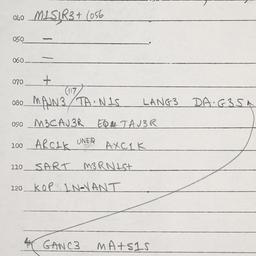 040 MISIR3+ (056
050 —
060 —
070 +
080 MAIN3/TA·NIS LANG3 DA·G35A
(117)
090 M3CAV3R EQ# TAV3R
100 ARCIK UNEQ AXCIK
110 SART M3RNIS+
120 KOP IN-VANT
GANC3 MA+SIS